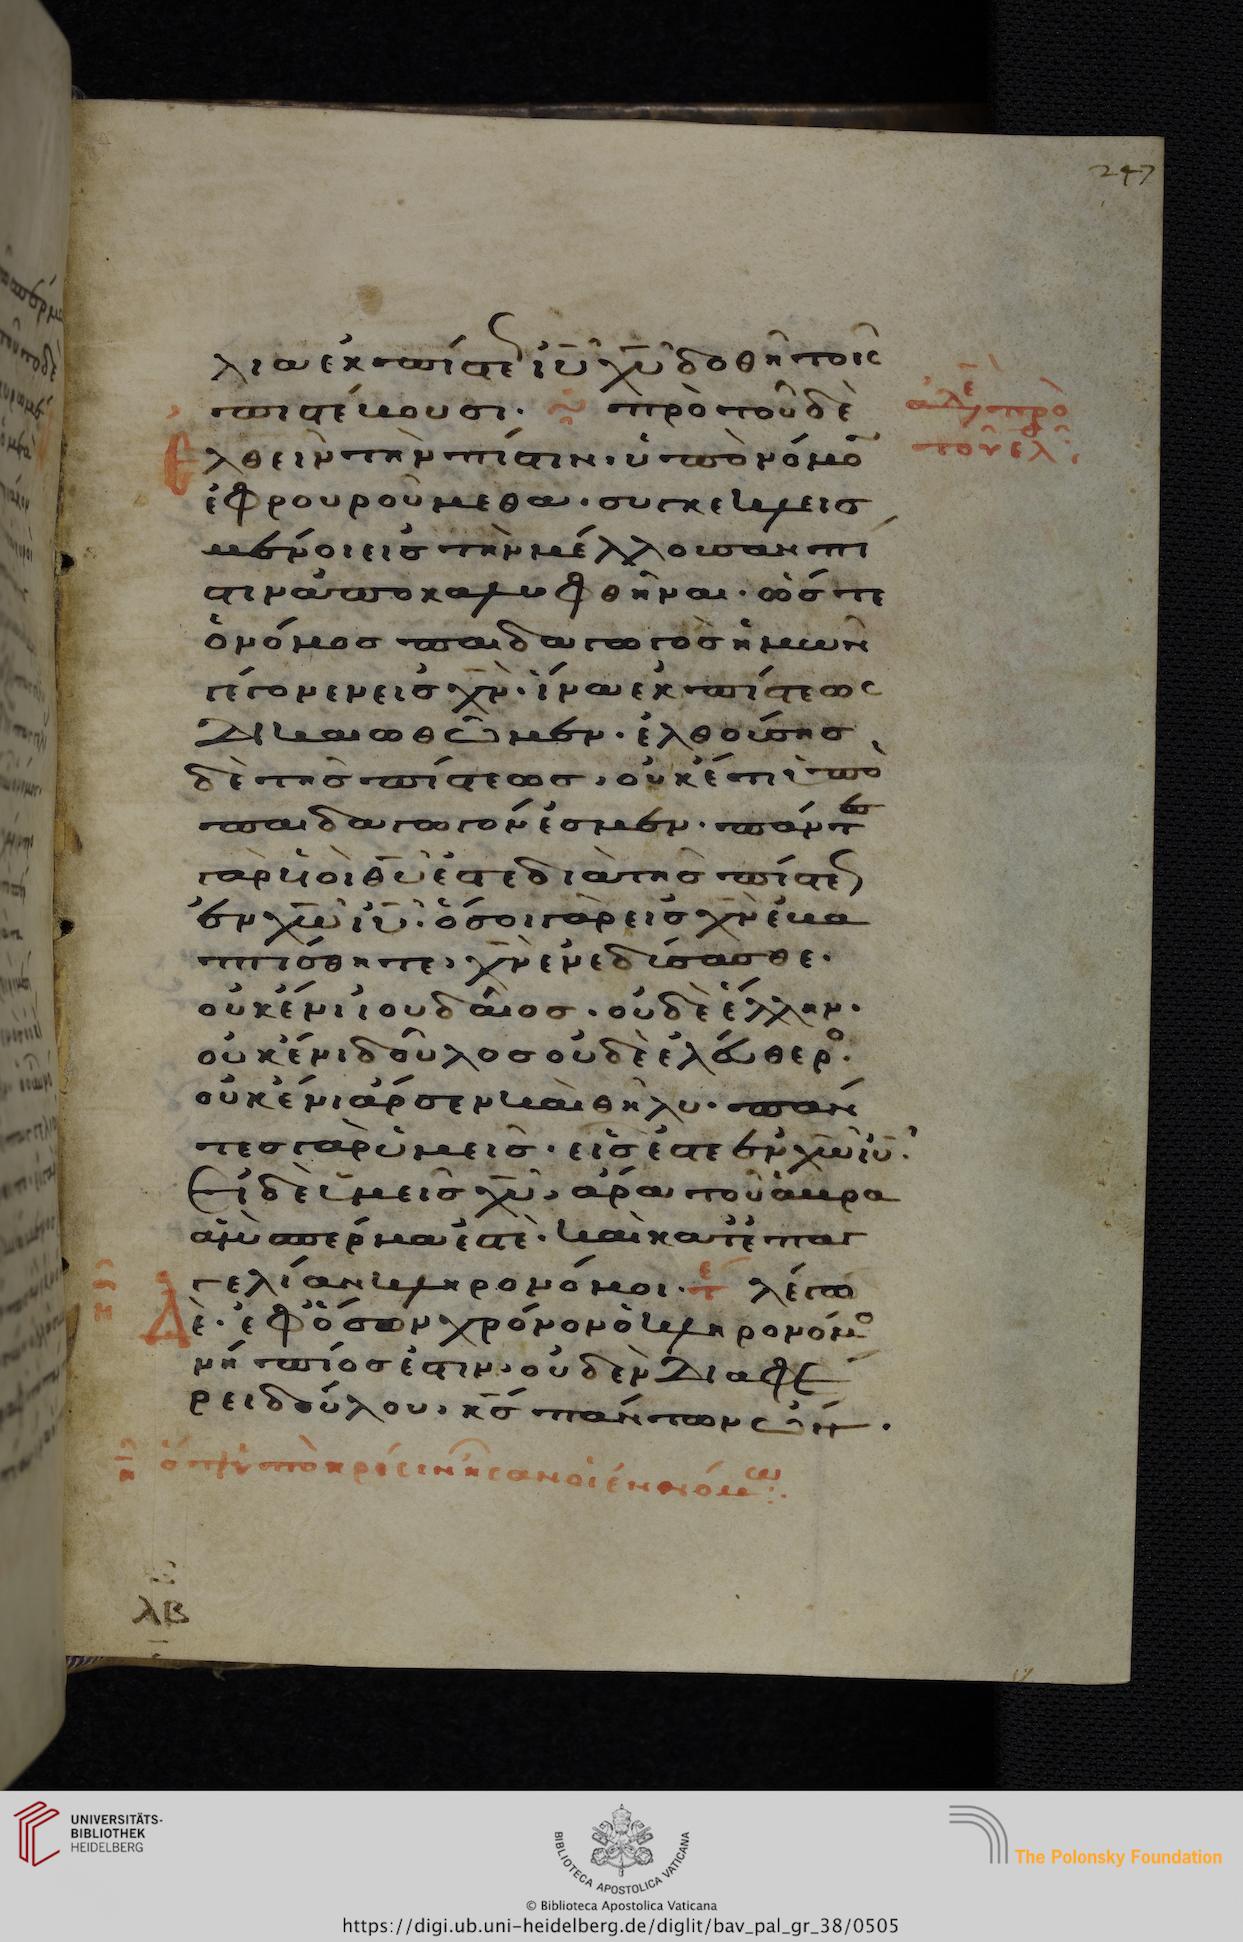 247
λια ἐκ πίστεως ἰυ χυ δοθῆ τοῖς
πιστεύουσι. πρὸ τοῦ δὲ
ἐλθεῖν τὴν πίστιν. ὑπὸ νόμον
ἐφρουρούμεθα. συγκεκλεισ
μένοι εἰς τὴν μέλλουσαν πί
στιν ἀποκαλυφθῆναι. ὥστε
ὁ νόμος παιδαγωγὸς ἡμῶν
γέγονεν εἰς χν. ἵνα ἐκ πίστεως
δικαιωθῶμεν. ἐλθούσης
δὲ τῆς πίστεως, οὐκέτι ὑπὸ
παιδαγωγόν ἐσμεν. πάντες
γὰρ υἱοὶ θυ ἐστε διὰ τῆς πίστεως
ἐν χω ἰυ. ὅσοι γὰρ εἰς χν ἐβα
πτίσθητε, χν ἐνεδύσασθε.
οὐκ ἔνι ἰουδαῖος. οὐδὲ ἕλλην.
οὐκ ἔνι δοῦλος οὐδὲ ἐλεύθερος.
οὐκ ἔνι ἄρσεν καὶ θῆλυ. πάν
τες γὰρ ὑμεῖς. εἷς ἐστε ἐν χω ἰυ.
Εἰ δὲ ὑμεῖς χυ, ἄρα τοῦ ἁβρα
ἀμ σπέρμα ἐστὲ. καὶ κατ ἐπαγ
γελίαν κληρονόμοι. λέγω
Δὲ. ἐφ ὅσον χρόνον ὁ κληρονόμος
νήπιός ἐστιν, οὐδὲν διαφέ
ρει δούλου, κς πάντων ὤν.
λβ
UNIVERSITÄTS-
BIBLIOTHEK
HEIDELBERG
BIBLIOTECA APOSTOLICA VATICANA
The Polonsky Foundation
© Biblioteca Apostolica Vaticana
https://digi.ub.uni-heidelberg.de/diglit/bav_pal_gr_38/0505